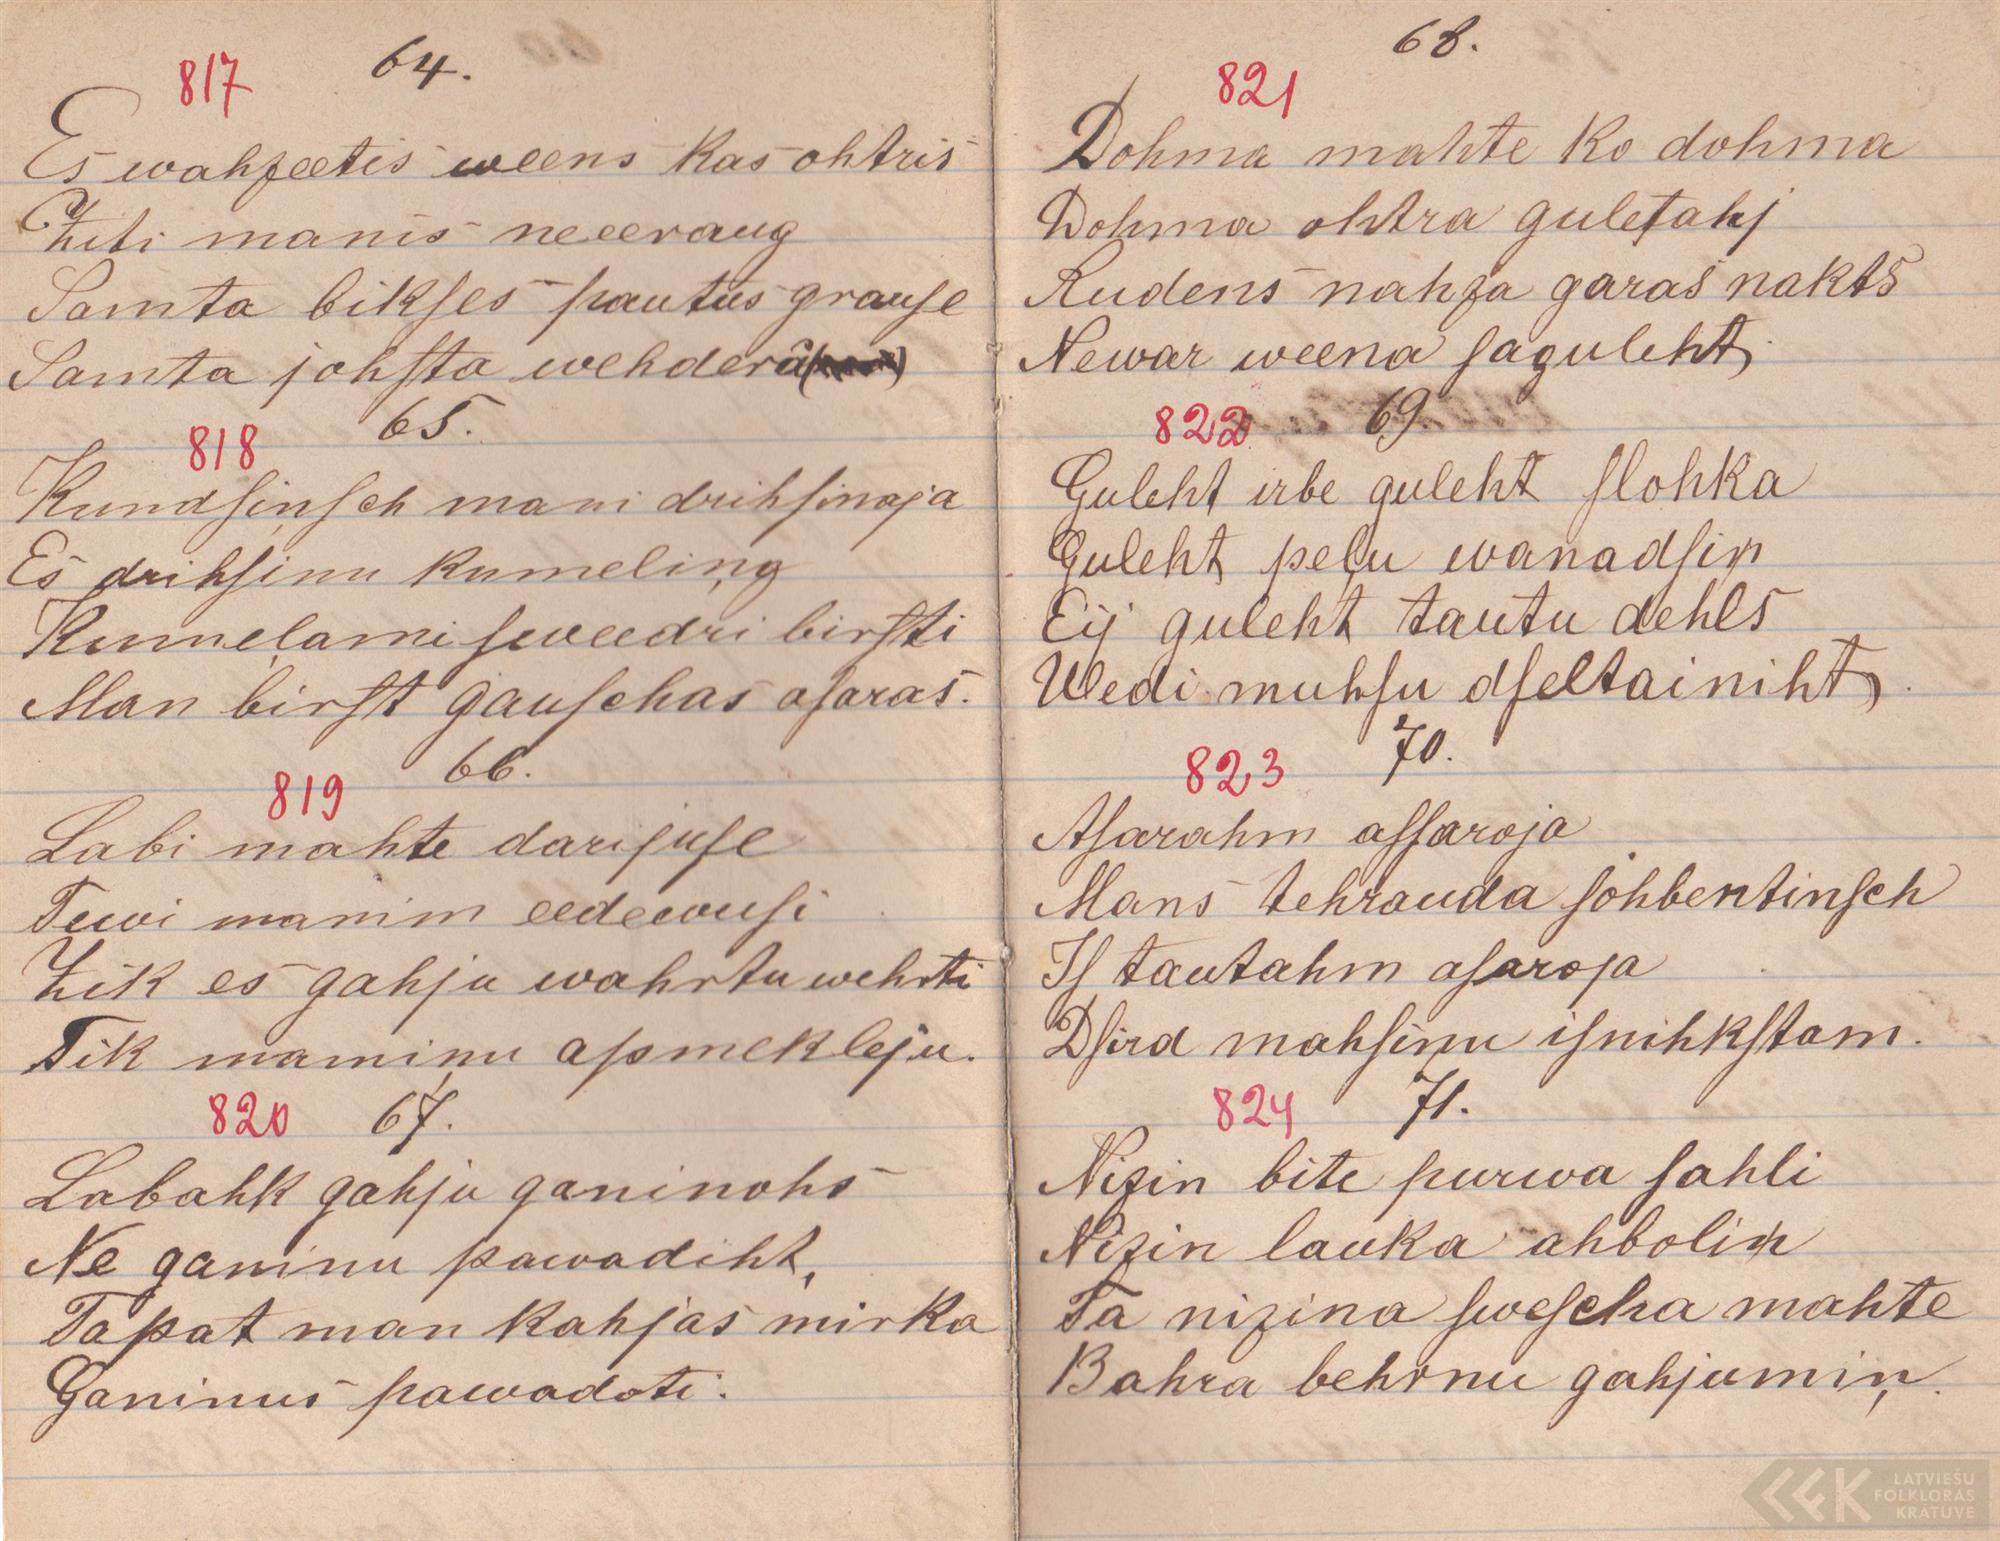 817 64.
Es wahzeetis weens kas ohtris
Ziti manis neeeraug
Samta bikses pautus grause
Samta johsta wehderâ
818 65.
Kundsinsch mani drihsinaja
Es drihsinu kumeliņg
Kumeļami sweedri birsti
Man birst gauschas asaras.
819 66.
Labi mahte darijuse
Tewi manim eedewusi
Zik es gahju wahrtu wehrti
Tik mamiņu apmekleju.
820 67.
Labahk gahju ganinohs
Ne ganinu pawadiht,
Tapat man kahjas mirka
Ganinus pawadoti.
68.
821
Dohma mahte ko dohma
Dohma ohtra guletahj
Rudens nahza garas nakts
Newar weena saguleht.
822 69.
Guleht irbe guleht slohka
Guleht peļu wanadsin
Eij guleht tautu dehls
Wedi muhsu dseltainiht.
823 70.
Asarahm assaroja
Mans tehrauda sohbentinsch
Is tautahm asaroja
Dsird mahsiņu isnihkstam.
824 71.
Nizin bite purwa sahli
Nizin lauka ahbolin
Ta nizina swescha mahte
Bahra behrnu gahjumiņ.
LATVIEŠU
FOLKLORAS
KRĀTUVE